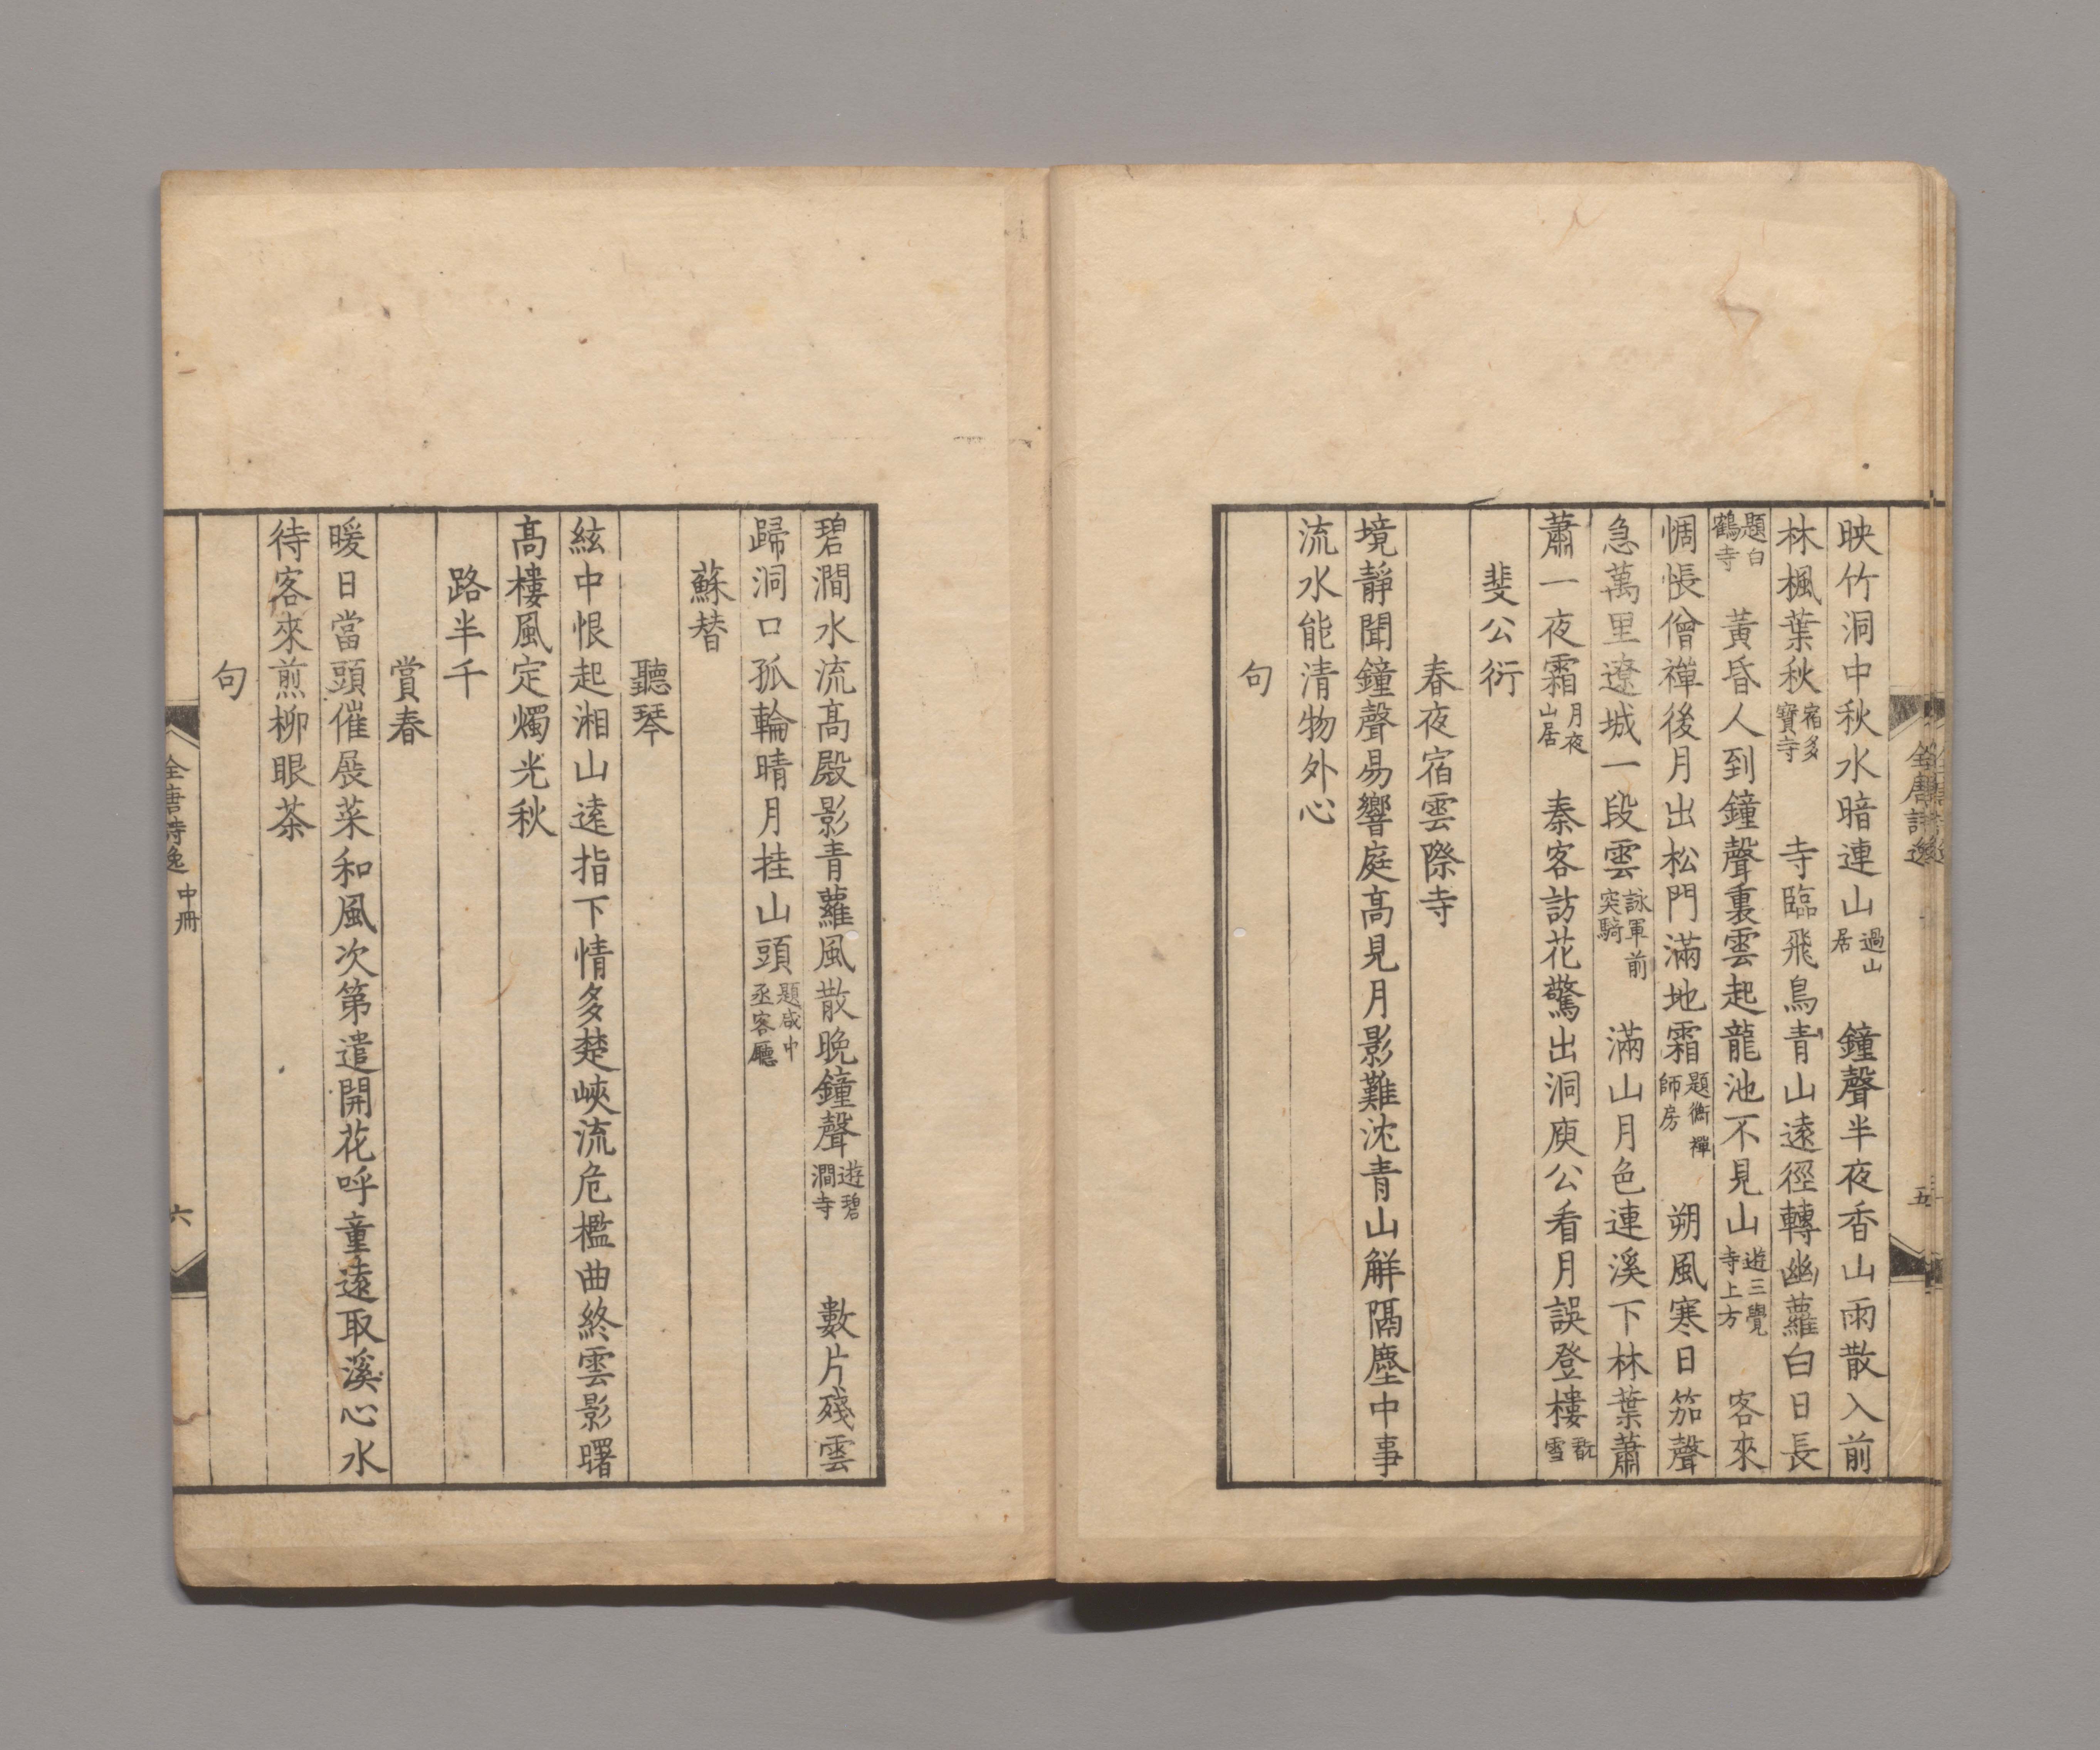 映竹洞中秋水暗連山過山居　鐘聲半夜香山雨散入前
林楓葉秋宿多寶寺　寺臨飛鳥青山遠徑轉幽蘿白日長
題白鶴寺　黃昏人到鐘聲裏雲起龍池不見山遊三覺寺上方　客來
惆悵僧禪後月出松門滿地霜題衡禪師房　朔風寒日笳聲
急萬里遼城一段雲詠軍前突騎　滿山月色連溪下林葉蕭
蕭一夜霜月夜山居　秦客訪花驚出洞庾公看月誤登樓翫雪
斐公衍
春夜宿雲際寺
境靜聞鐘聲易響庭高見月影難沈青山解隔塵中事
流水能清物外心
句
五
碧澗水流高殿影青蘿風散晚鐘聲遊碧澗寺　數片殘雲
歸洞口孤輪晴月挂山頭題咸中丞客廳
蘇替
聽琴
絃中恨起湘山遠指下情多楚峽流危檻曲終雲影曙
高樓風定燭光秋
路半千
賞春
暖日當頭催展菜和風次第遣開花呼童遠取溪心水
待客來煎柳眼茶
句
全唐詩逸 中冊 六